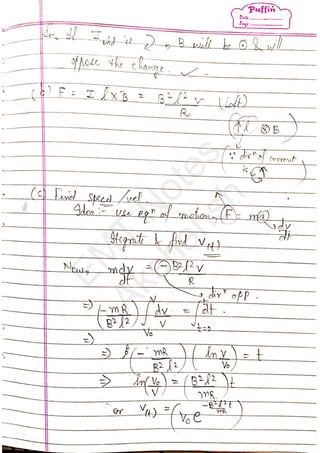 Puffin
Date
Page
So, if I ind is ↻, B will be ⊙ & will
oppose the change. ✓
(b) F = I l × B = B²l²v / R (Left)
(↑l ⊗B)
(∵ dirⁿ of current
is ↺)
(c) Find speed/vel.
Idea:- use eqⁿ of motion, F = ma dv/dt
Itegrate & find v(t)
Now, m dv/dt = (-) B²l²v / R
→ dirⁿ opp.
⇒ (-mR / B²l²) ∫_{v₀}^{v} dv/v = ∫_{t=0}^{t} dt.
⇒
⇒ (- mR / B²l²) (ln v/v₀) = t
⇒ ln(v₀/v) = (B²l² / mR) t
or v(t) = (v₀ e^{-B²l²t/mR})
EMT Notes